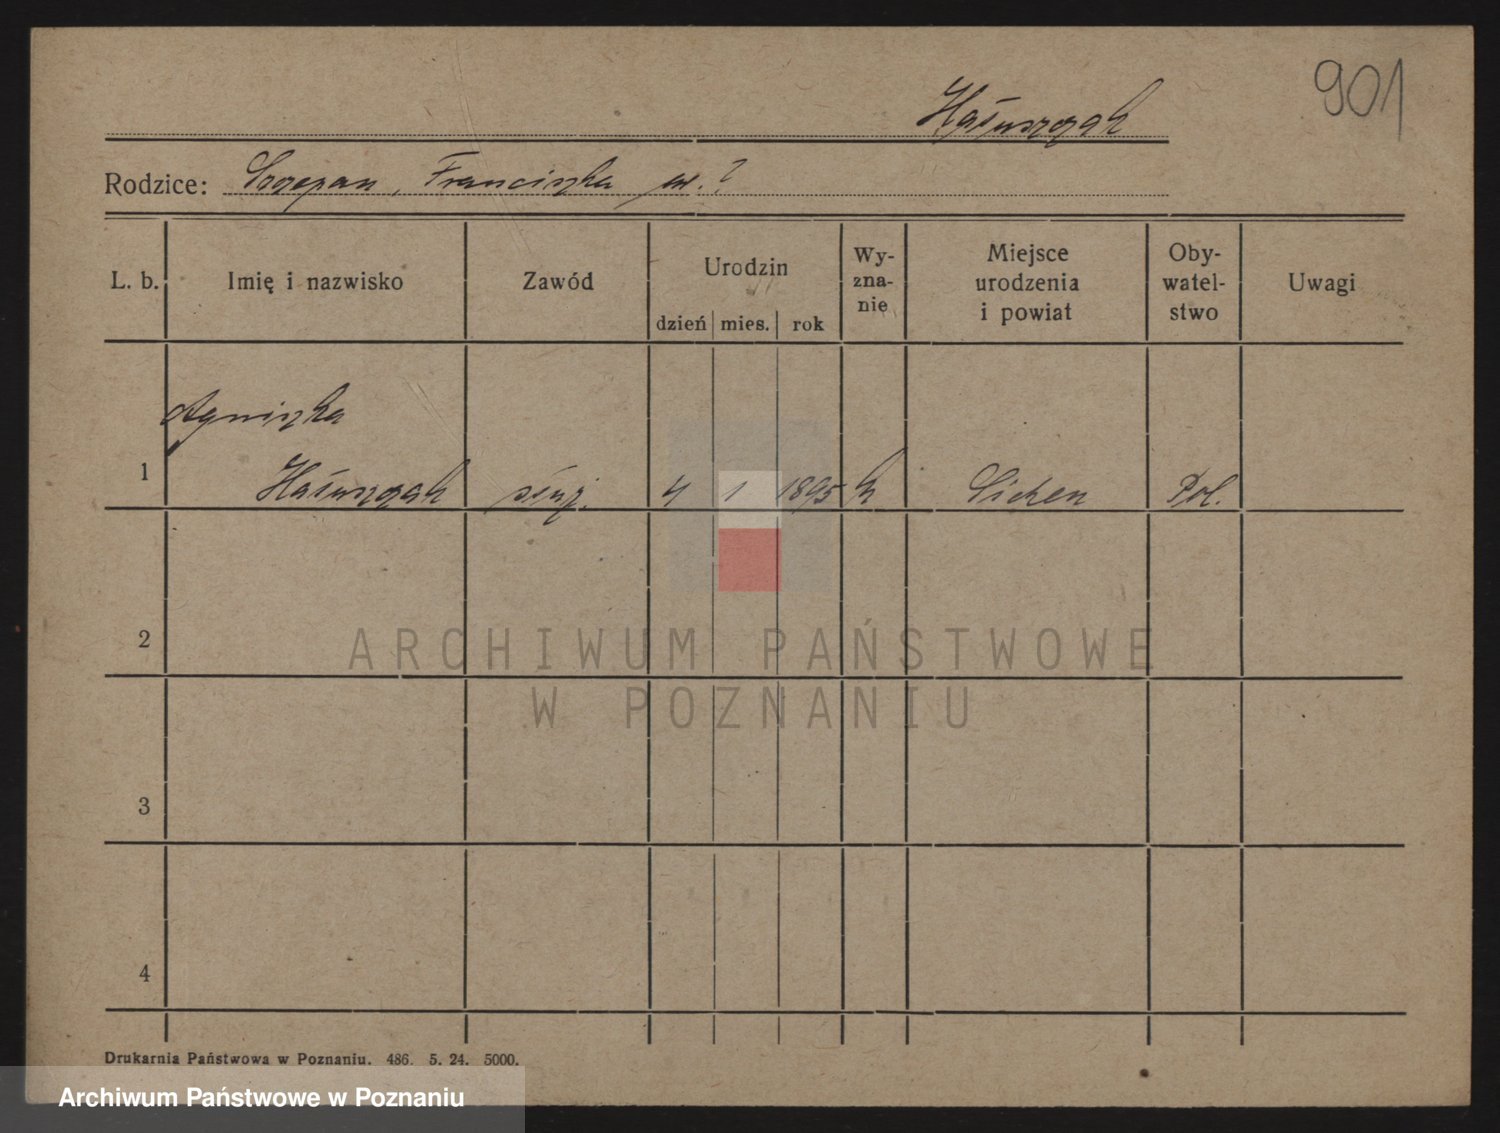 901
Hałuszczak
Rodzice: Szczepan, Franciszka ur.?
L. b.
Imię i nazwisko
Zawód
Urodzin
dzień
mies.
rok
Wy-
zna-
nie
Miejsce
urodzenia
i powiat
Oby-
watel-
stwo
Uwagi
Agniszka
1 Hałuszczak służ. 4 1 1895 k Sichen Pol.
2
3
4
ARCHIWUM PAŃSTWOWE
W POZNANIU
Drukarnia Państwowa w Poznaniu. 486. 5. 24. 5000.
Archiwum Państwowe w Poznaniu